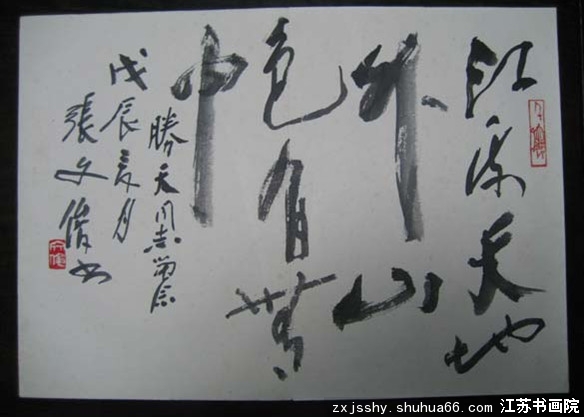 江流天地
外山
色有无
中
勝天同志留念
戊辰夏月
張文俊书
zxjsshy.shuhua66.com 江苏书画院